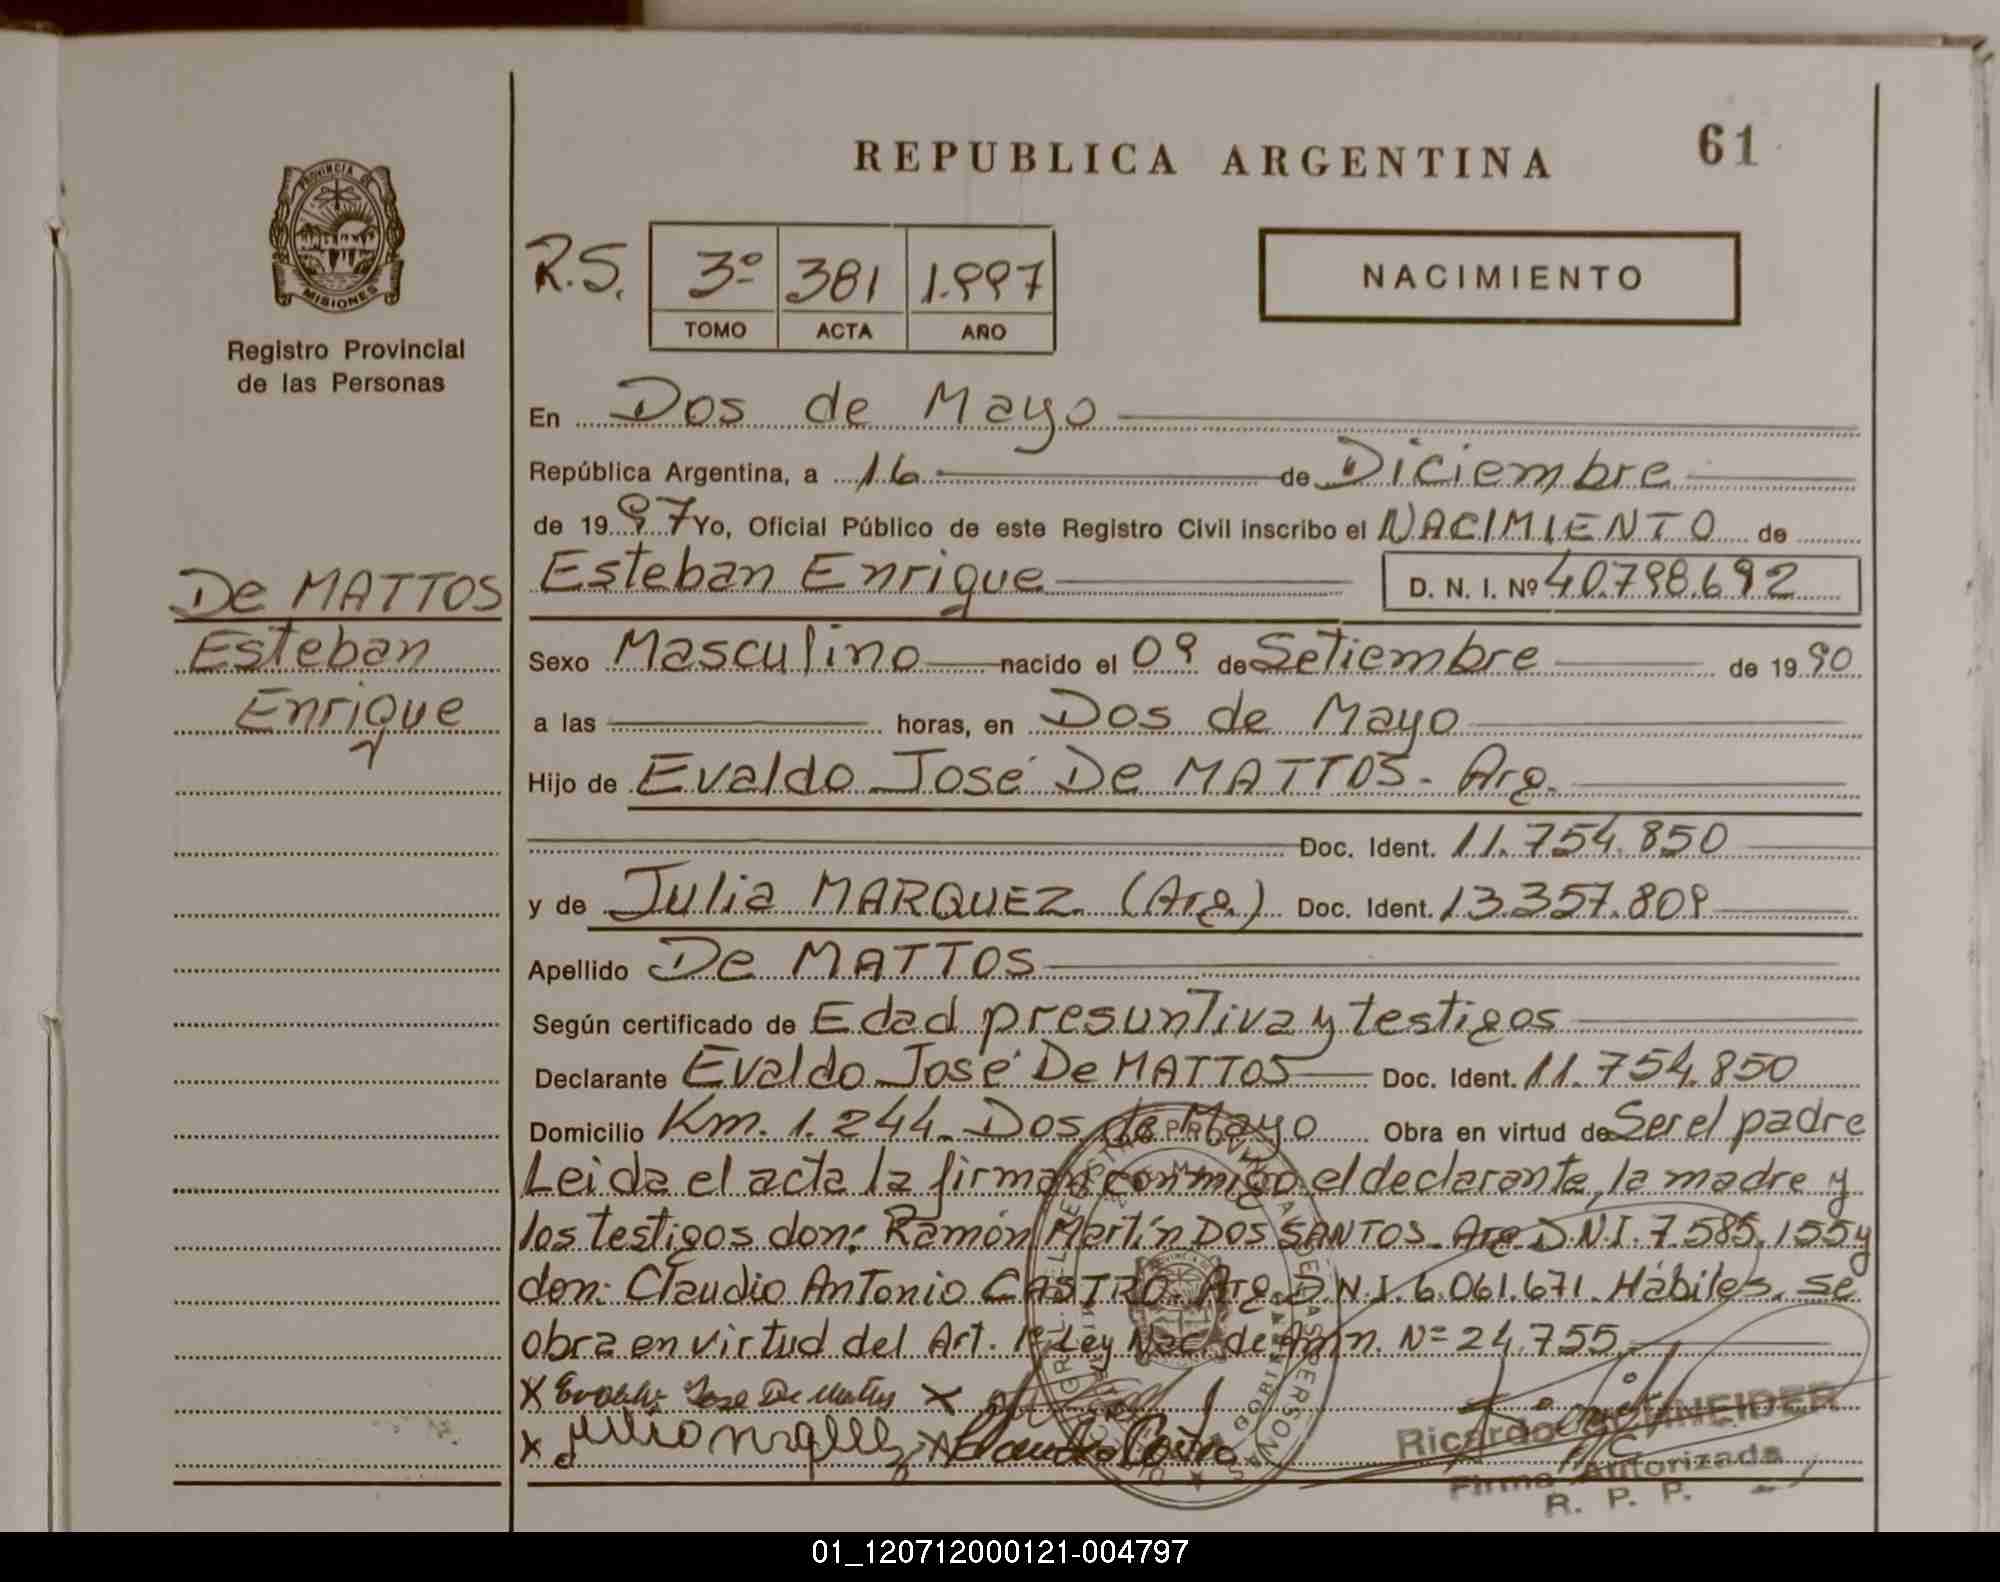 REPUBLICA ARGENTINA
61
PROVINCIA DE
MISIONES
Registro Provincial
de las Personas
R.S.
3º 381 1.997
TOMO ACTA AÑO
NACIMIENTO
En Dos de Mayo
República Argentina, a 16 de Diciembre
de 1997 Yo, Oficial Público de este Registro Civil inscribo el NACIMIENTO de
De MATTOS
Esteban
Enrique
Esteban Enrique D. N. I. Nº 40.798.692
Sexo Masculino nacido el 09 de Setiembre de 1990
a las horas, en Dos de Mayo
Hijo de Evaldo José De MATTOS - Arg.
Doc. Ident. 11.754.850
y de Julia MARQUEZ (Arg.) Doc. Ident. 13.357.809
Apellido De MATTOS
Según certificado de Edad presuntiva y testigos
Declarante Evaldo José De MATTOS Doc. Ident. 11.754.850
Domicilio Km. 1.244 Dos de Mayo Obra en virtud de Ser el padre
Leida el acta la firman conmigo el declarante, la madre y
los testigos don: Ramón Martín DOS SANTOS. Arg. D.N.I. 7.585.155 y
don: Claudio Antonio CASTRO. Arg. D.N.I. 6.061.671. Hábiles. se
obra en virtud del Art. 1º Ley Nac. de Amn. Nº 24.755.
X Evaldo Jose De Mattos X
X X Claudio Castro
Ricardo SCHNEIDER
Firma Autorizada
R. P. P.
01_120712000121-004797